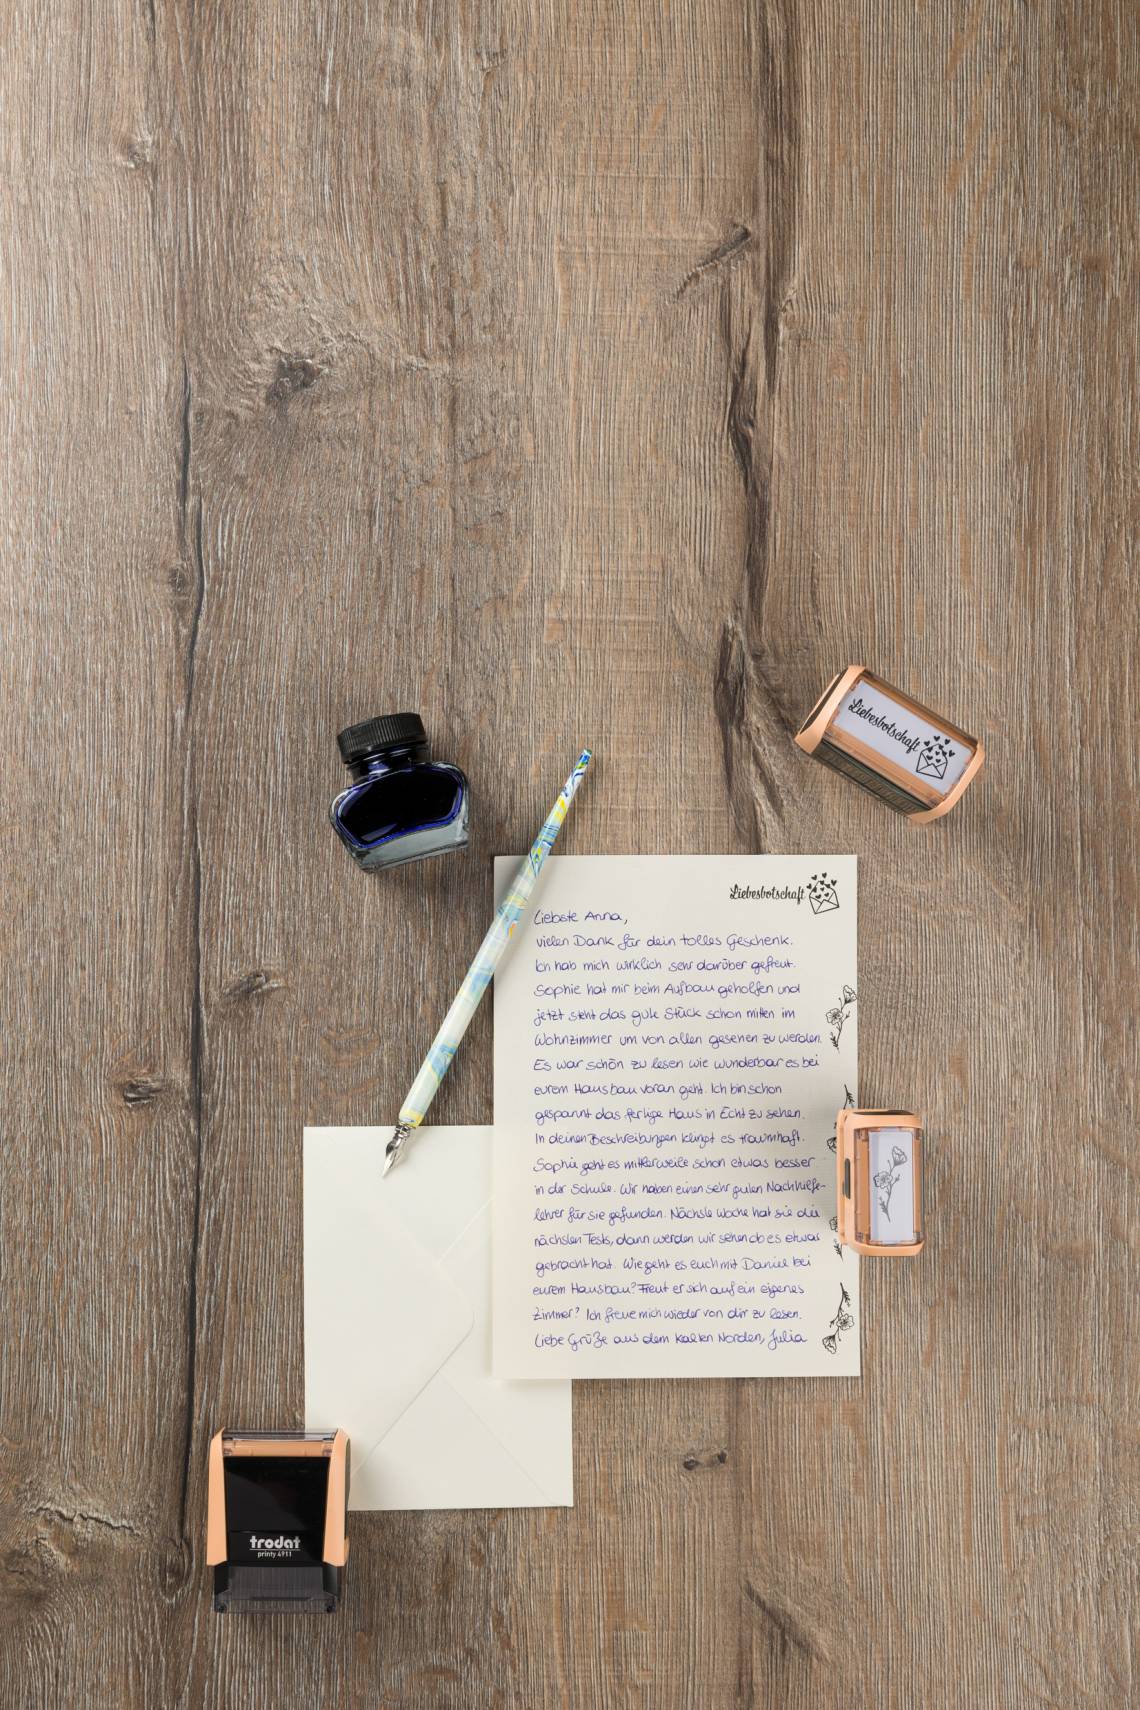 Liebesbotschaft
Liebesbotschaft
Liebste Anna,
vielen Dank für dein tolles Geschenk.
Ich hab mich wirklich sehr darüber gefreut.
Sophie hat mir beim Aufbau geholfen und
jetzt steht das gute Stück schon mitten im
Wohnzimmer um von allen gesehen zu werden.
Es war schön zu lesen wie wunderbar es bei
eurem Hausbau voran geht. Ich bin schon
gespannt das fertige Haus in Echt zu sehen.
In deinen Beschreibungen klingt es traumhaft.
Sophie geht es mittlerweile schon etwas besser
in der Schule. Wir haben einen sehr guten Nachhilfe-
lehrer für sie gefunden. Nächste Woche hat sie die
nächsten Tests, dann werden wir sehen ob es etwas
gebracht hat. Wie geht es euch mit Daniel bei
eurem Hausbau? Freut er sich auf ein eigenes
Zimmer? Ich freue mich wieder von dir zu lesen.
Liebe Grüße aus dem kalten Norden, Julia
trodat
printy 4911